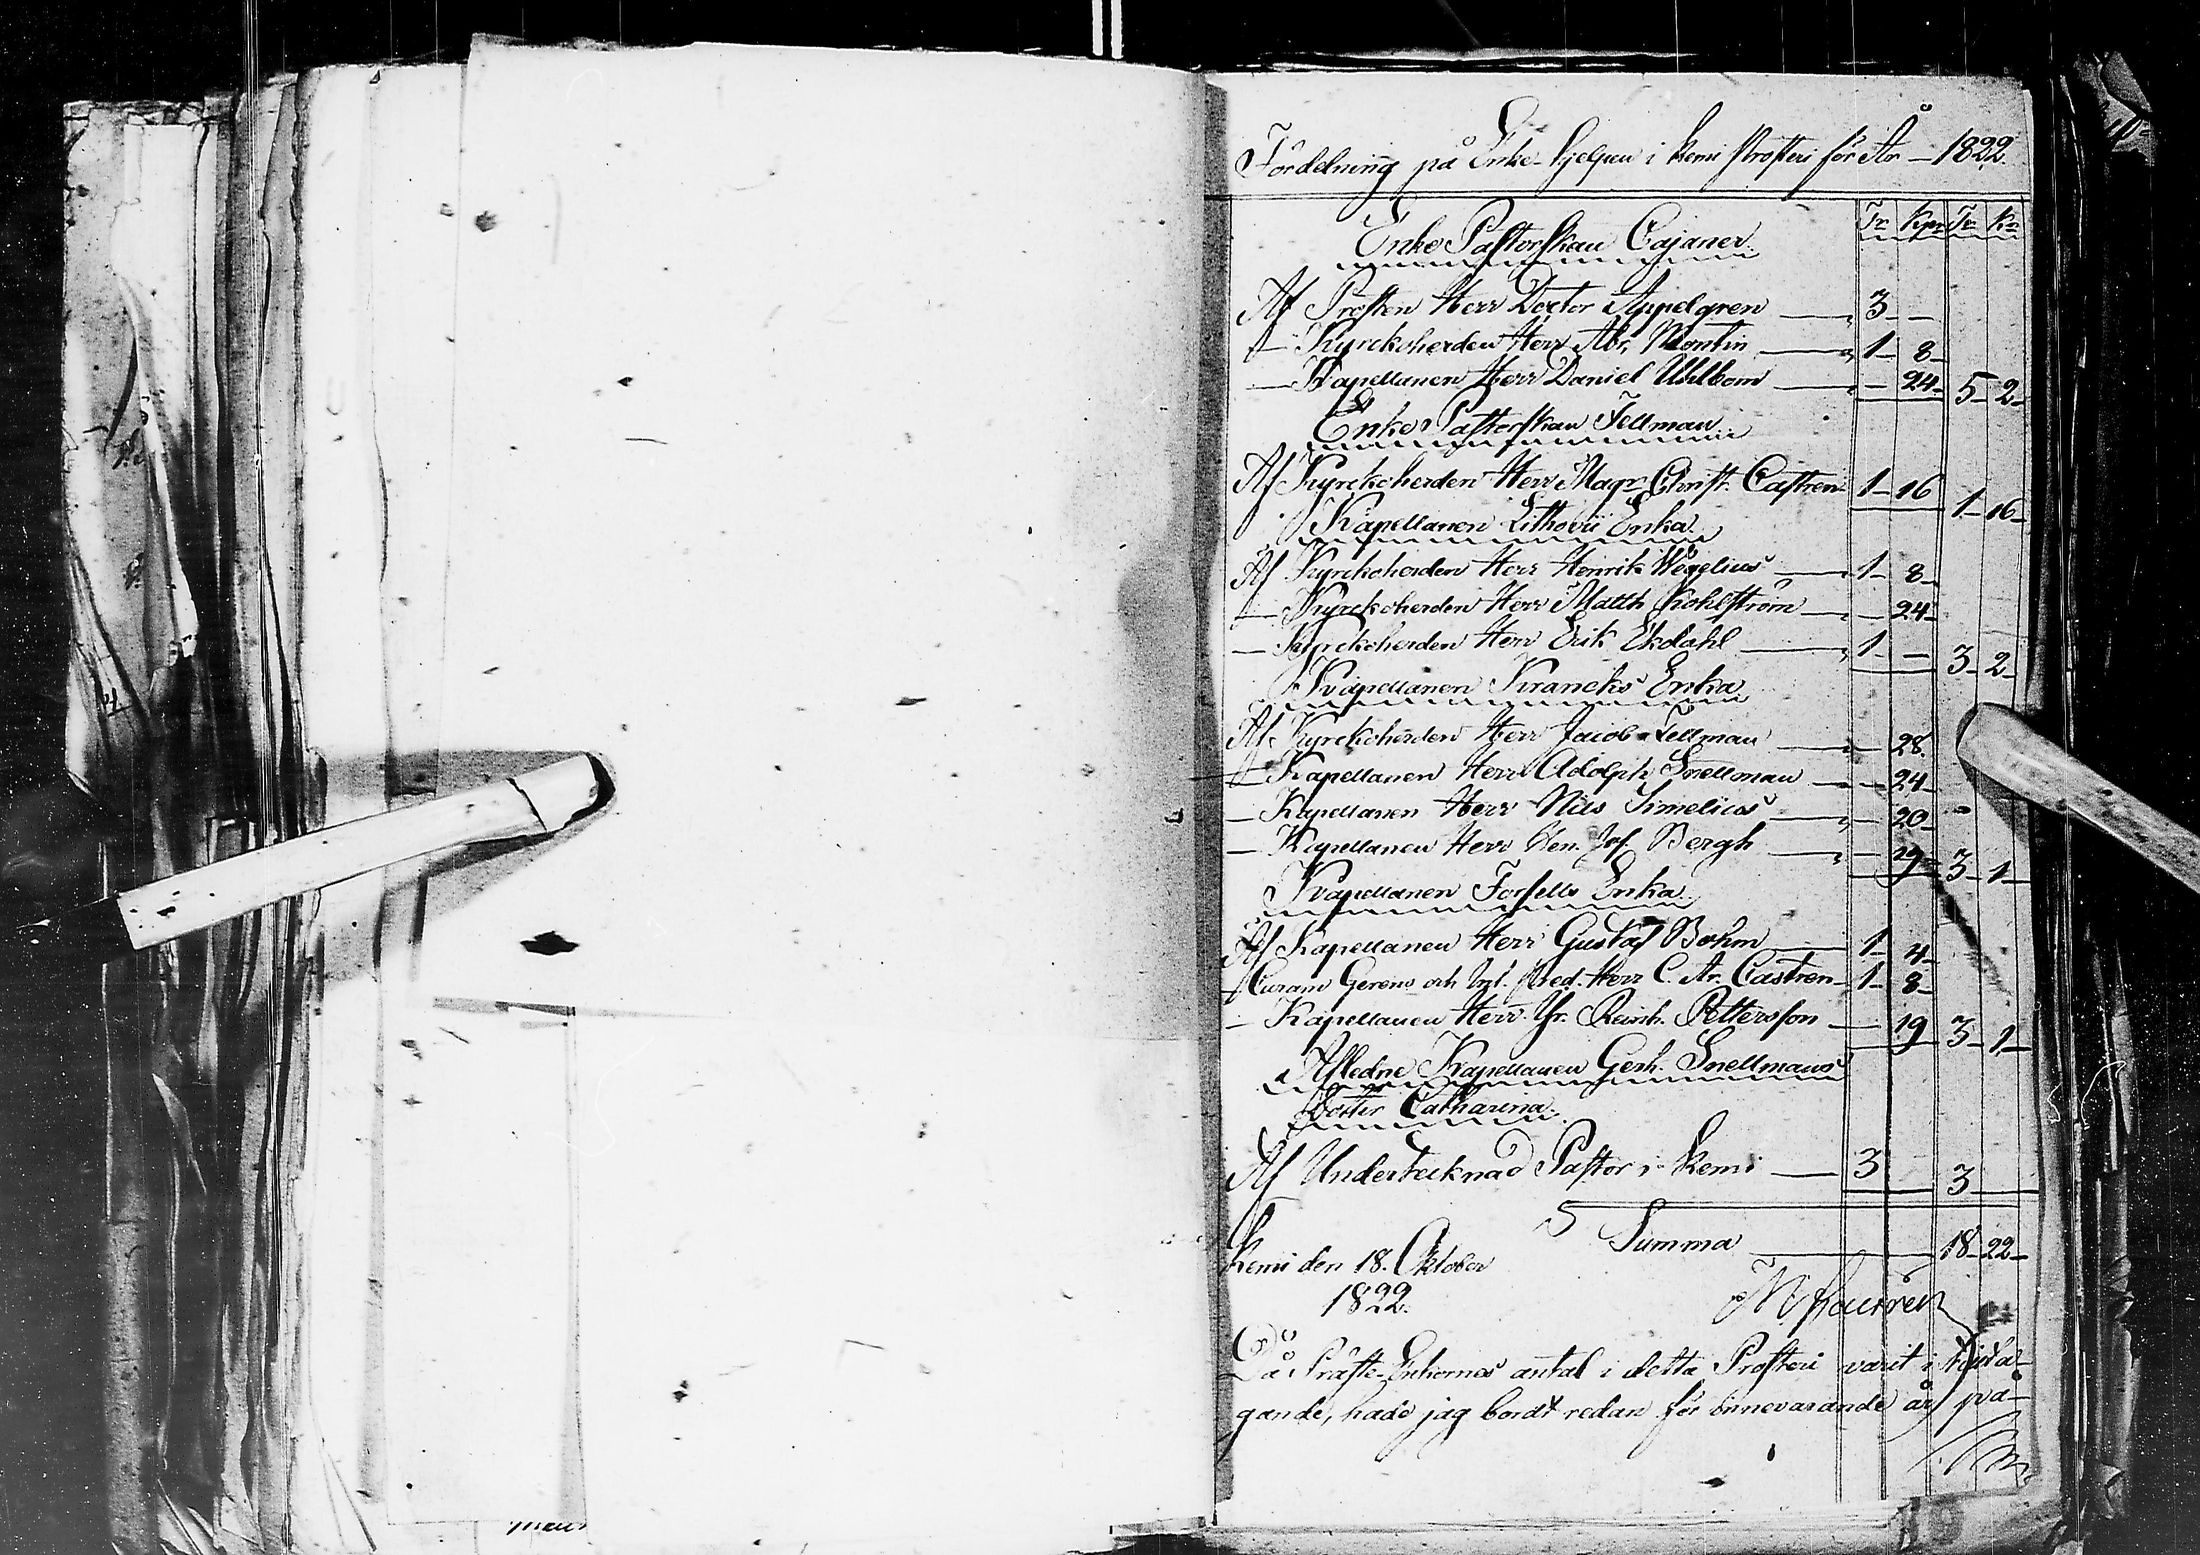 Fördelning på Enke-hjelpen i Kemi Prosteri för År 1822.
Tr Kpr Tr Kr
Enke Pastorskan Cajaner.
Af Prosten Herr Doctor Appelgren 3 —
— Kyrckoherden Herr Abr. Montin 1 — 8 —
— Kapellanen Herr Daniel Uhlbom — 24 — 5 — 2 —
Enke Pastorskan Fellman
Af Kyrckoherden Herr Magr. Christ. Castren 1 — 16 1 — 16 —
Kapellanen Lithovii Enka
Af Kyrckoherden Herr Henrik Wegelius 1 — 8 —
— Kyrckoherden Herr Matth Kohlström — 24 —
— Kyrckoherden Herr Erik Ekdahl 1 — — 3 — 2
Kapellanen Krancks Enka
Af Kyrckoherden Herr Jacob Fellman — 28
— Kapellanen Herr Adolph Snellman — 24
— Kapellanen Herr Nils Simelius — 20 —
— Kapellanen Herr Jos. Bergh — 29 3 — 1 —
Kapellanen Forsells Enka
Af Kapellanen Herr Gustaf Bohm 1 — 4 —
— Curam Gerens och Pred. Herr C. Ar. Castren 1 — 8 —
— Kapellanen Herr Reinh. Pettersson — 19 3 — 1 —
Afledne Kapellanen Gerh. Snellmans
Dotter Catharina.
Af Undertecknad Pastor i Kemi 3 3
Summa 18 — 22 —
Kemi den 18. Oktober
1822.
Då Präste-Enkornes antal i detta Prosteri varit i
gande, hade jag bordt redan för innevarande år på-